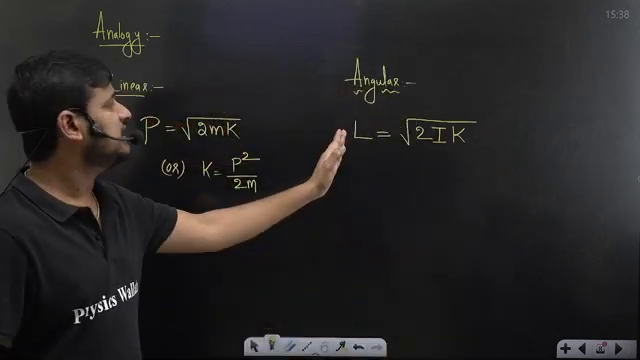 15:38
Analogy :-
Linear :-
P = √2mK
(or) K = P²/2m
Angular :-
L = √2IK
Physics Walla